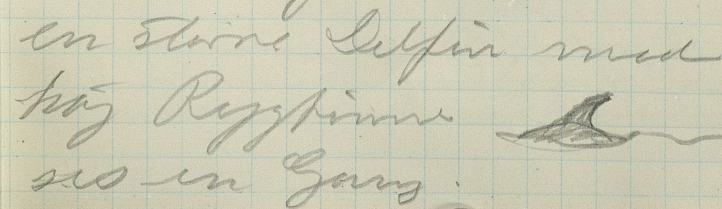 en større Delfin med
høj Rygfinne
ses en Gang.